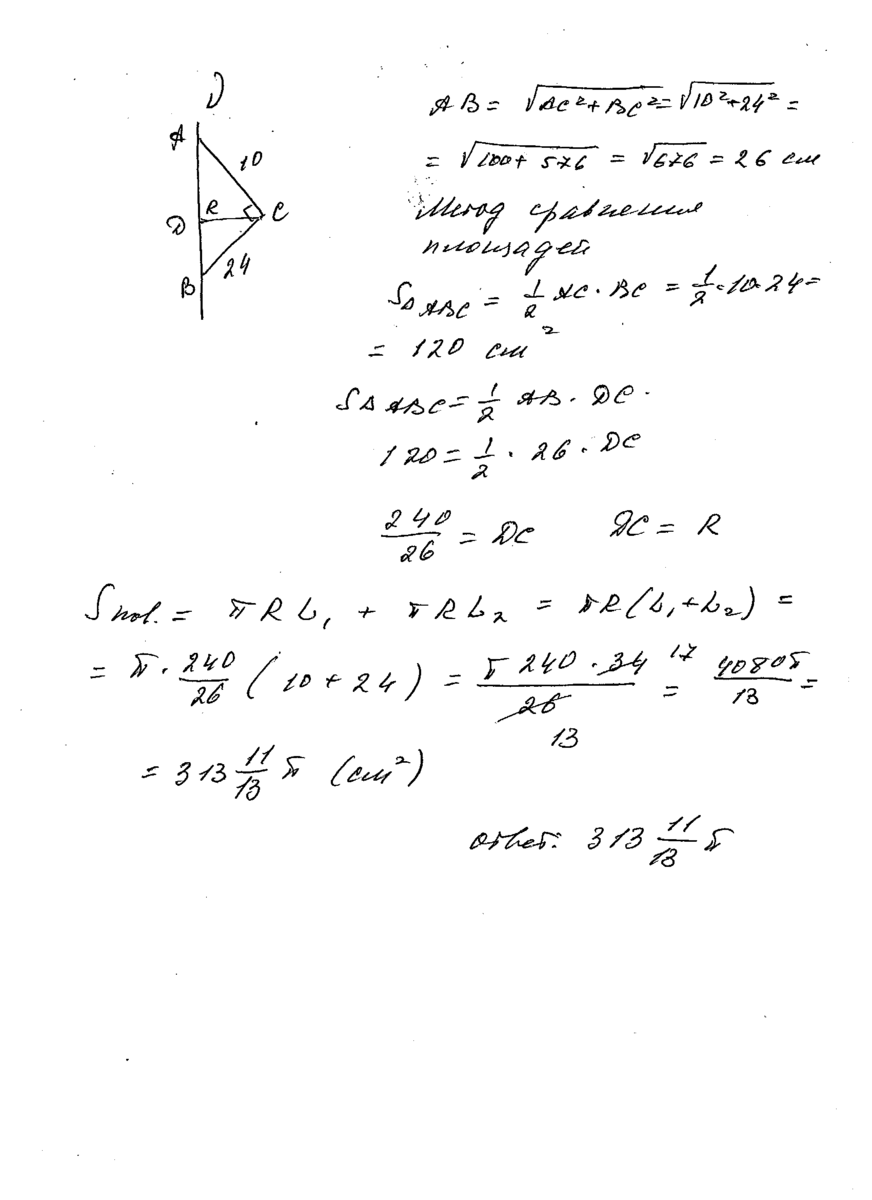 1)
A
10
R
C
D
24
B
AB = √AC²+BC² = √10²+24² =
= √100+576 = √676 = 26 см
Метод сравнения
площадей
S△ABC = 1/2 AC · BC = 1/2 · 10 · 24 =
= 120 см²
S△ABC = 1/2 AB · DC.
120 = 1/2 · 26 · DC
240/26 = DC DC = R
Sпов. = πRL₁ + πRL₂ = πR(L₁+L₂) =
= π · 240/26 (10 + 24) = π 240 · 34 17 / 26 13 = 4080π/13 =
= 313 11/13 π (см²)
ответ: 313 11/13 π